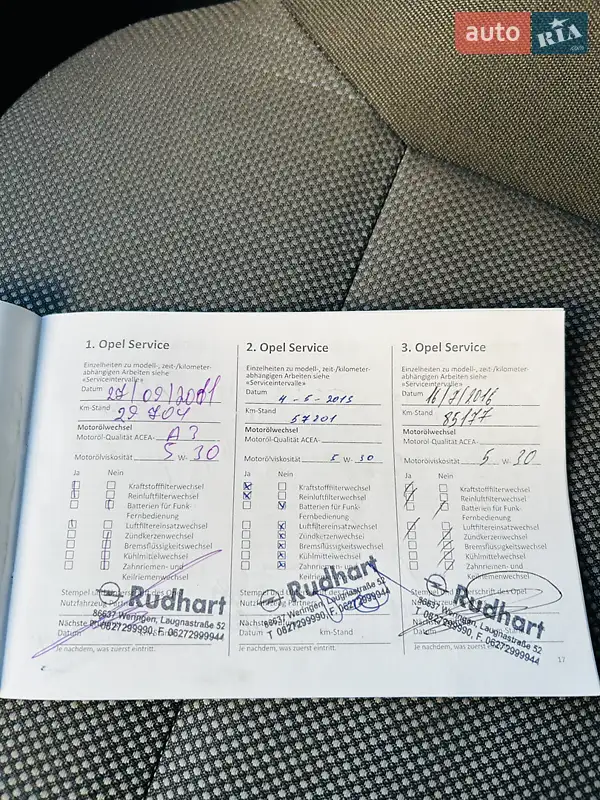 auto RIA .com
1. Opel Service
Einzelheiten zu modell-, zeit-/kilometer-
abhängigen Arbeiten siehe
»Serviceintervalle«
Datum 27/09/2011
Km-Stand 29 704
Motorölwechsel
Motoröl-Qualität ACEA- A3
Motorölviskosität 5 W- 30
Ja Nein
Kraftstofffilterwechsel
Reinluftfilterwechsel
Batterien für Funk-
Fernbedienung
Luftfiltereinsatzwechsel
Zündkerzenwechsel
Bremsflüssigkeitswechsel
Kühlmittelwechsel
Zahnriemen- und
Keilriemenwechsel
Stempel
Nutzfahrzeug Partners
Rudhart
86637 Wertingen, Laugnastraße 52
T 0827299990, F. 08272999944
Nächste
Datum
Je nachdem, was zuerst eintritt.
2. Opel Service
Einzelheiten zu modell-, zeit-/kilometer-
abhängigen Arbeiten siehe
»Serviceintervalle«
Datum 4-5-2013
Km-Stand 57201
Motorölwechsel
Motoröl-Qualität ACEA-
Motorölviskosität 5 W- 30
Ja Nein
Kraftstofffilterwechsel
Reinluftfilterwechsel
Batterien für Funk-
Fernbedienung
Luftfiltereinsatzwechsel
Zündkerzenwechsel
Bremsflüssigkeitswechsel
Kühlmittelwechsel
Zahnriemen- und
Keilriemenwechsel
Nutzfahrzeug Partners
Rudhart
86637 Wertingen, Laugnastraße 52
T 0827299990, F. 08272999944
Nächste
Datum km-Stand
Je nachdem, was zuerst eintritt.
3. Opel Service
Einzelheiten zu modell-, zeit-/kilometer-
abhängigen Arbeiten siehe
»Serviceintervalle«
Datum 16/7/2016
Km-Stand 85177
Motorölwechsel
Motoröl-Qualität ACEA-
Motorölviskosität 5 W- 30
Ja Nein
Kraftstofffilterwechsel
Reinluftfilterwechsel
Batterien für Funk-
Fernbedienung
Luftfiltereinsatzwechsel
Zündkerzenwechsel
Bremsflüssigkeitswechsel
Kühlmittelwechsel
Zahnriemen- und
Keilriemenwechsel
Nutzfahrzeug
Rudhart
86637 Wertingen, Laugnastraße 52
T 0827299990, F. 08272999944
Nächste
Datum
Je nachdem, was zuerst
17